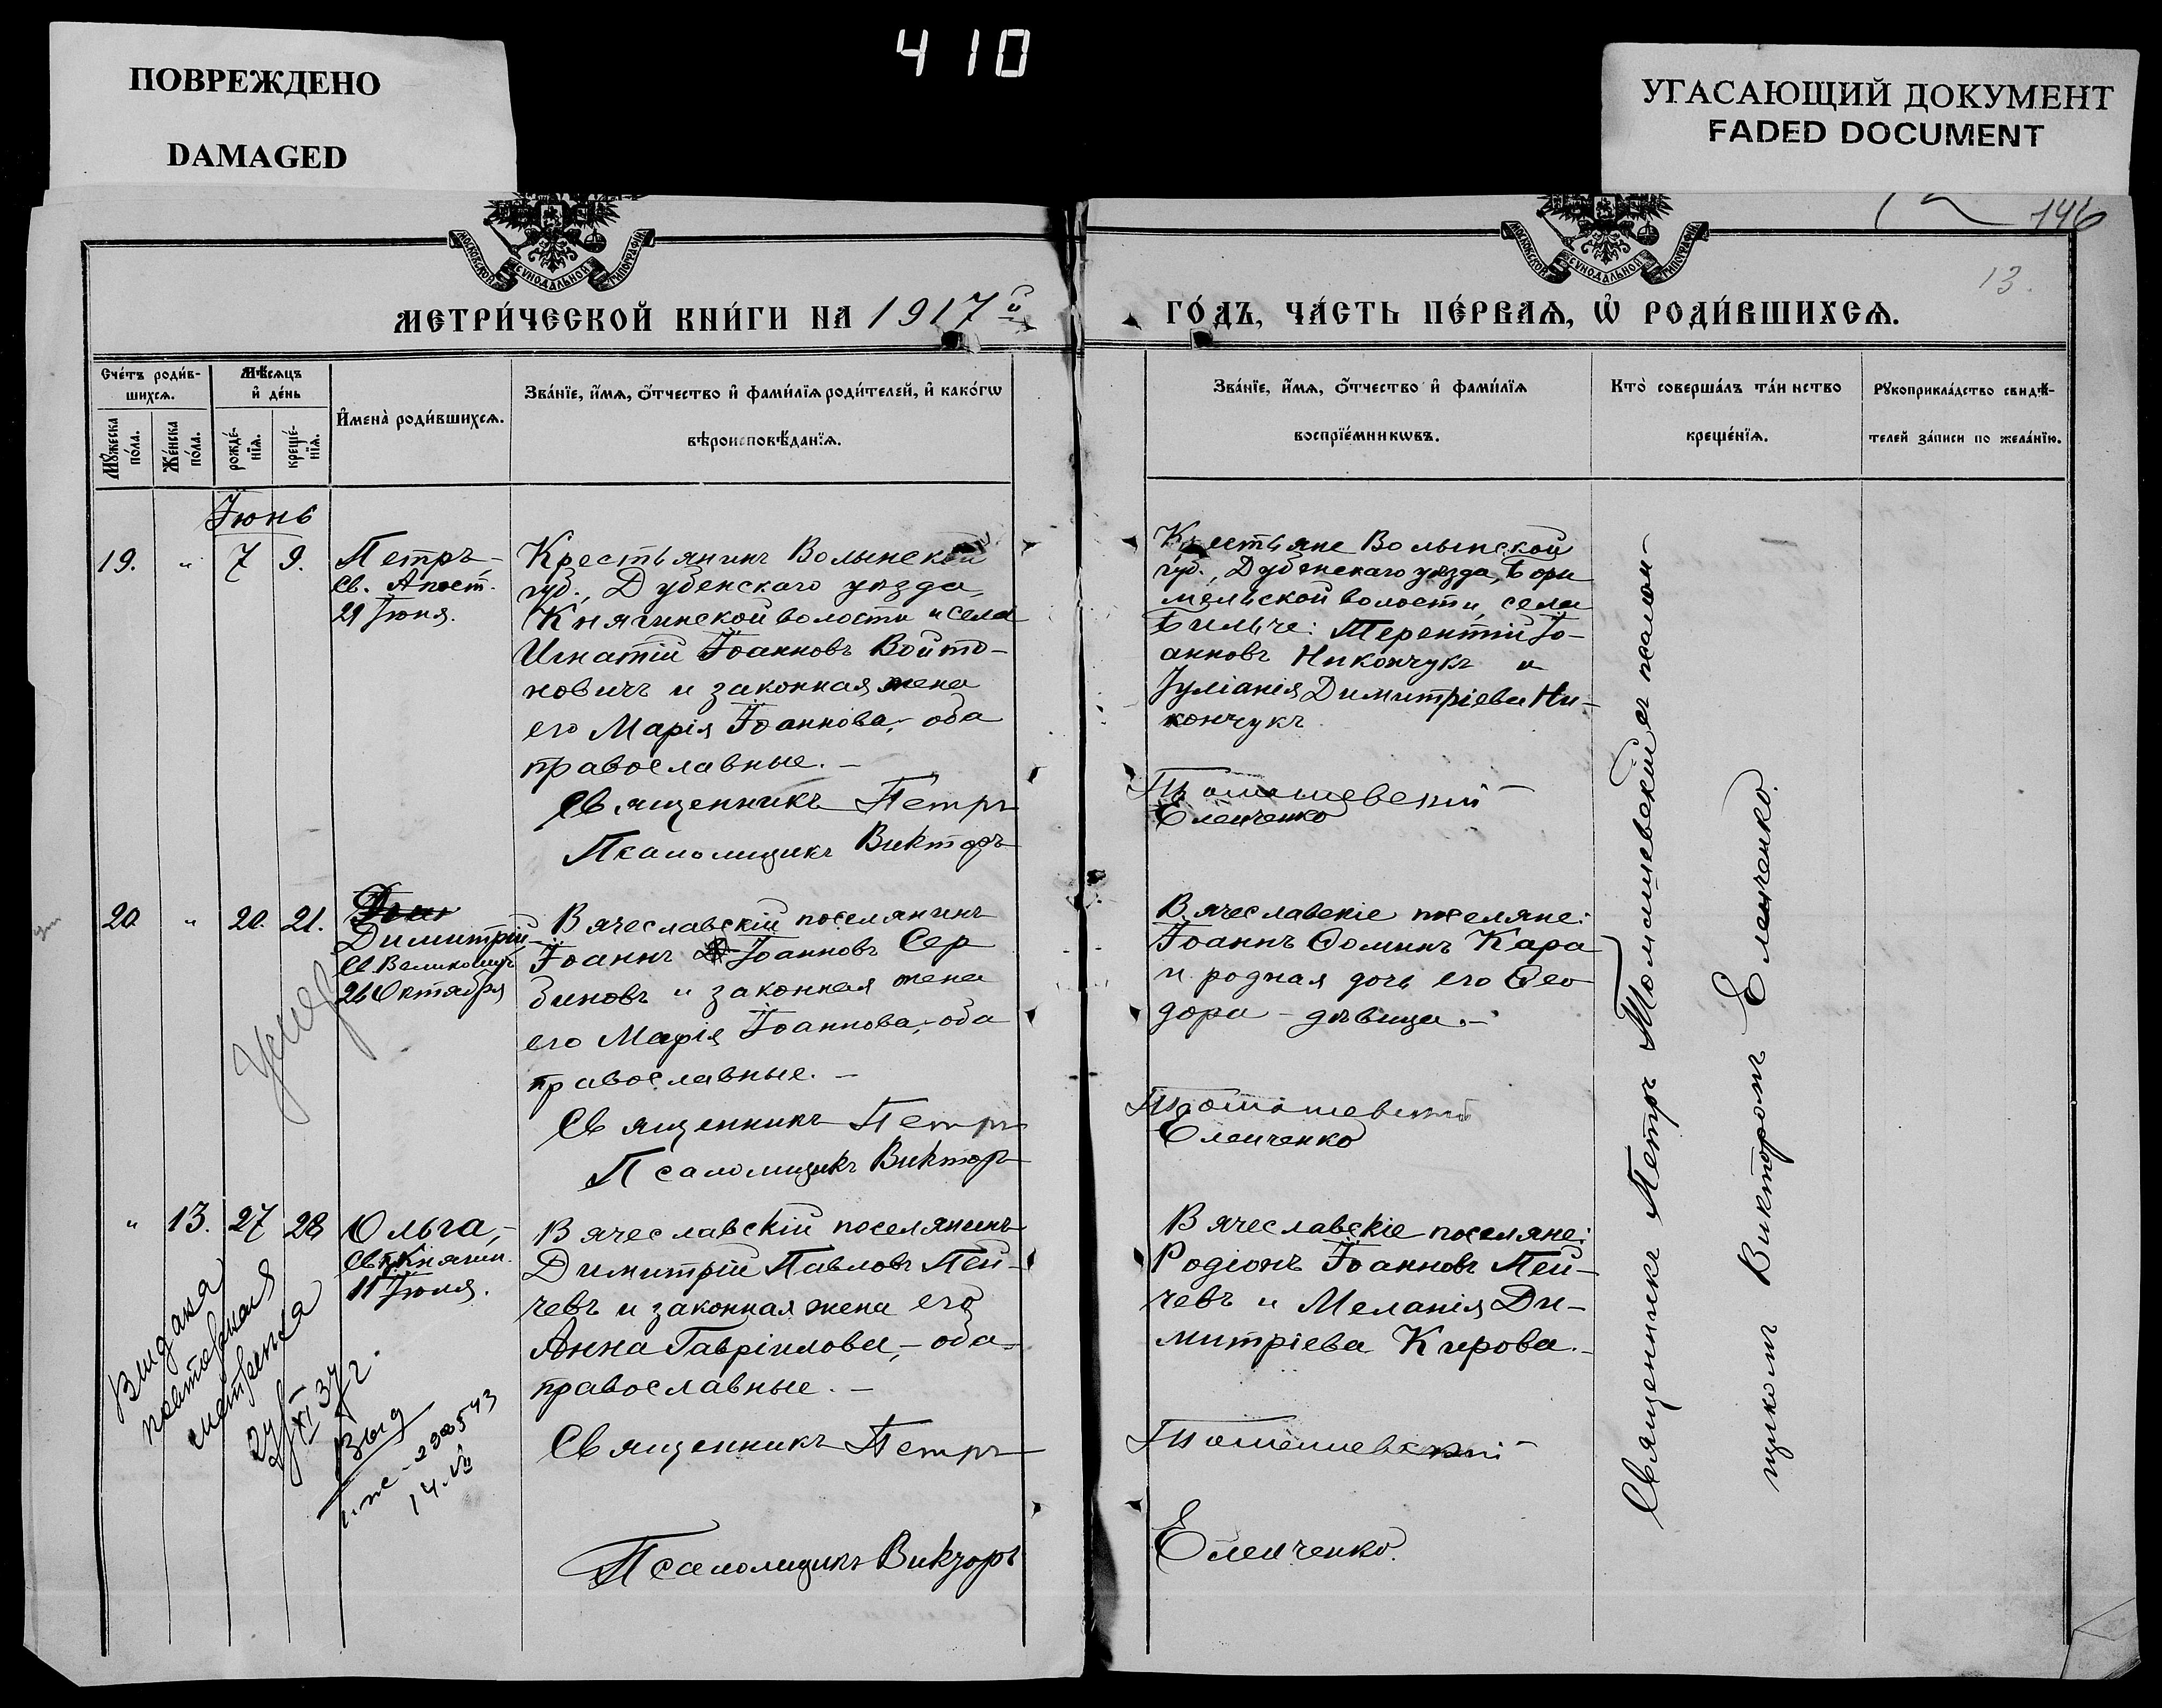 410
ПОВРЕЖДЕНО
DAMAGED
УГАСАЮЩИЙ ДОКУМЕНТ
FADED DOCUMENT
146
13.
МОСКОВСКОЙ СѴНОДАЛЬНОЙ ТИПОГРАФІИ
МОСКОВСКОЙ СѴНОДАЛЬНОЙ ТИПОГРАФІИ
МЕТРИ́ЧЕСКОЙ КНИ́ГИ НА 1917й
ГО́ДЪ, ЧА́СТЬ ПЕ́РВАѦ, Ѡ҆ РОДИ́ВШИХСѦ.
Счéтъ роди́в-
шихсѧ.
Мꙋ́жеска по́ла.
Же́нска по́ла.
Мѣ́сѧцъ
и҆ де́нь
рожде́-
нїѧ.
креще́-
нїѧ.
И҆мена̀ роди́вшихсѧ.
Зва́нїе, и҆́мѧ, ѻ҆́тчество и҆ фами́лїѧ роди́телей, и҆ како́гѡ
вѣроисповѣ́данїѧ.
Зва́нїе, и҆́мѧ, ѻ҆́тчество и҆ фами́лїѧ
воспрїе́мникѡвъ.
Кто̀ соверша́лъ та́инство
креще́нїѧ.
Рꙋкоприкла́дство свидѣ́-
телей за́писи по жела́нїю.
Іюнь
19. " 7 9.
Петръ,-
Св. Апост.
29 Іюня.
Крестьянинъ Волынской
губ., Дубенскаго уѣзда,
Княгинской волости и села
Игнатій Іоанновъ Войто-
новичъ и законная жена
его Марія Іоаннова,- оба
православные.-
Священникъ Петръ
Псаломщикъ Викторъ
Крестьяне Волынской
губ., Дубенскаго уѣзда, Бори
мельской волости, села
Бильче: Терентій Іо-
анновъ Никончукъ и
Іуліанія Димитріева Ни-
кончукъ.
Томашевскій
Еленченко
20. " 20. 21.
Димитрій-
Св. Великомуч
26 Октября
Вячеславскій поселянинъ
Іоаннъ Іоанновъ Сер
биновъ и законная жена
его Марія Іоаннова,- оба
православные.-
Священникъ Петръ
Псаломщикъ Викторъ
Вячеславскіе поселяне:
Іоаннъ Ѳоминъ Кара
и родная дочь его Ѳео
дора - дѣвица.-
Томашевскій
Еленченко
" 13. 27 28
Ольга,-
11 Іюля.
Вячеславскій поселянинъ
Димитрій Павловъ Пей-
чевъ и законная жена его
Анна Гавріилова,- оба
православные.-
Священникъ Петръ
Псаломщикъ Викторъ
Вячеславскіе поселяне:
Родіонъ Іоанновъ Пей-
чевъ и Меланія Ди-
митріева Кирова.-
Томашевскій
Еленченко.
Видана
повторная
метрика
27/XI 37 г.
Выд
Священникъ Петръ Томашевскій съ псалом-
щикомъ Викторомъ Еленченко.